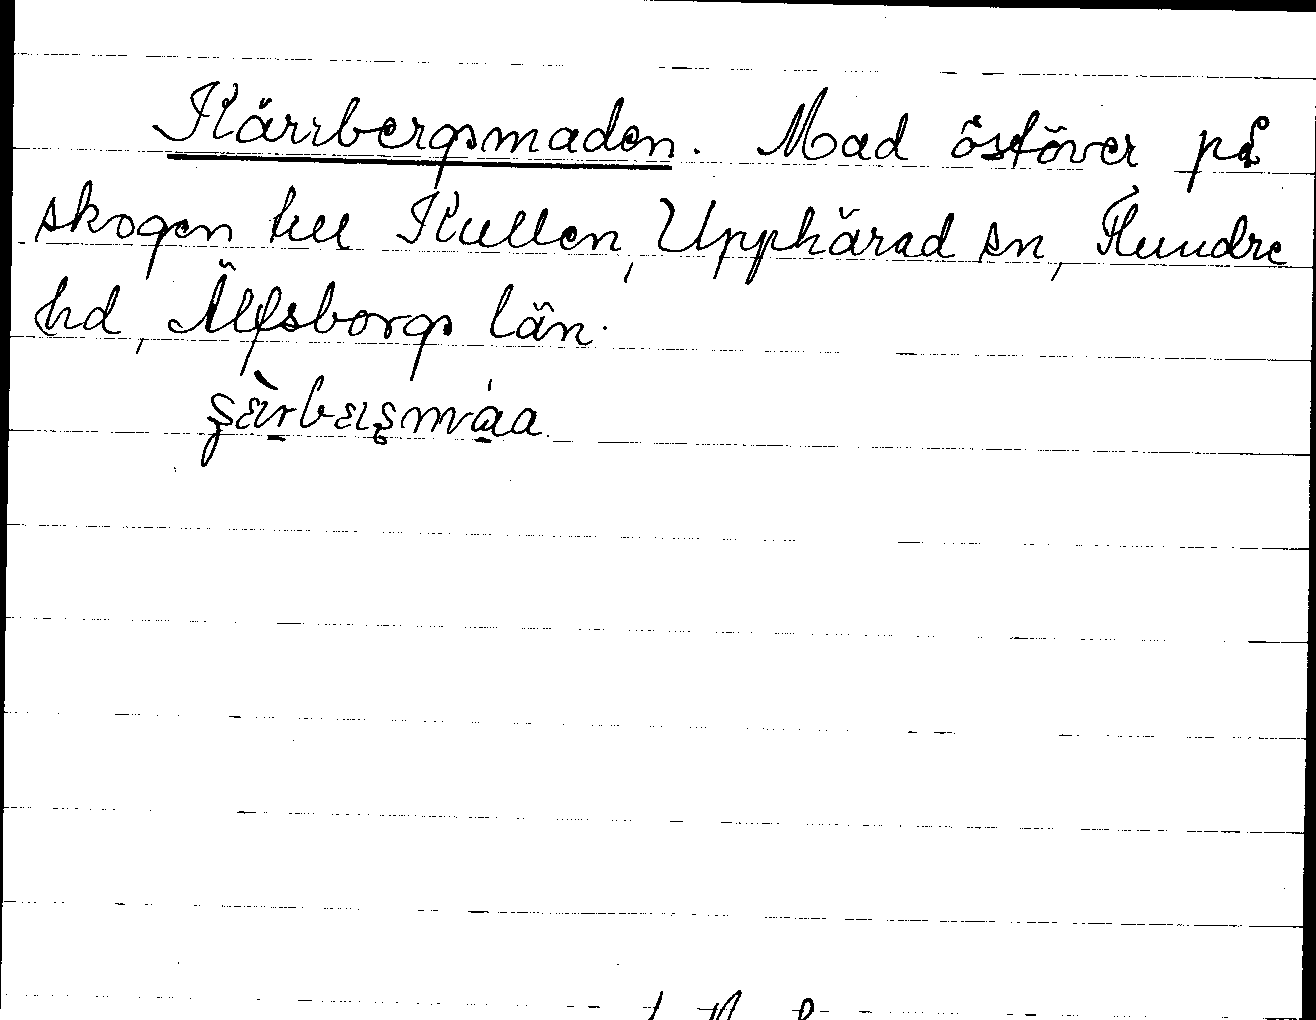 Kärrbergsmaden. Mad östöver på
skogen till Kullen, Upphärad sn, Flundre
hd, Älfsborgs län.